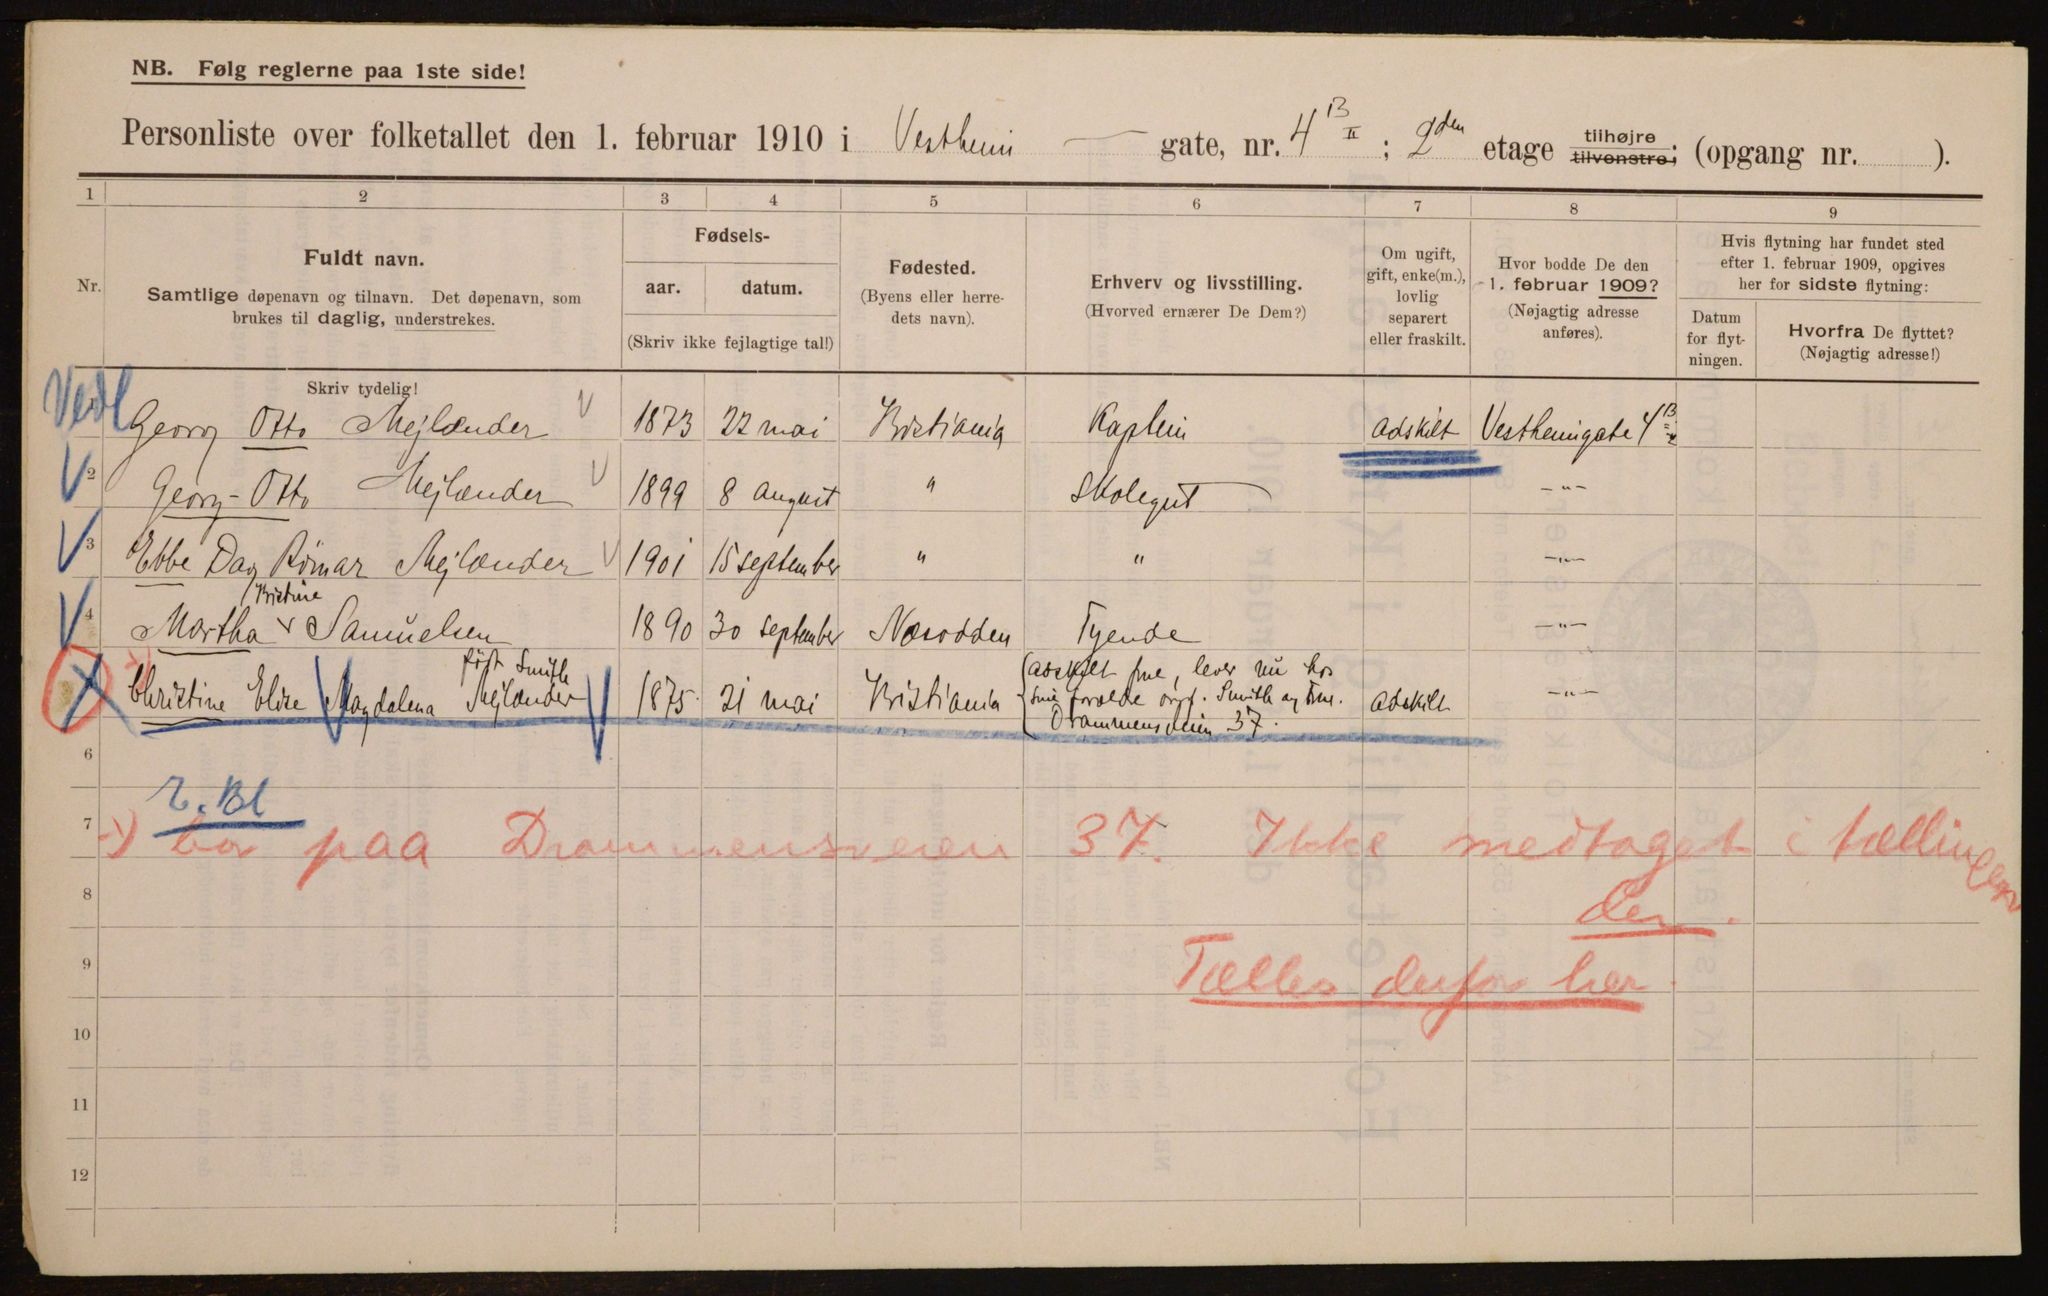 NB. Følg reglerne paa 1ste side!
Personliste over folketallet den 1. februar 1910 i Vestheim gate, nr. 4 B II ; 2den etage tilhøjre tilvenstre; (opgang nr. ).
1 2 3 4 5 6 7 8 9
Nr.
Fuldt navn.
Samtlige døpenavn og tilnavn. Det døpenavn, som
brukes til daglig, understrekes.
Skriv tydelig!
Fødsels-
aar. datum.
(Skriv ikke fejlagtige tal!)
Fødested.
(Byens eller herre-
dets navn).
Erhverv og livsstilling.
(Hvorved ernærer De Dem?)
Om ugift,
gift, enke(m.),
lovlig
separert
eller fraskilt.
Hvor bodde De den
1. februar 1909?
(Nøjagtig adresse
anføres).
Hvis flytning har fundet sted
efter 1. februar 1909, opgives
her for sidste flytning:
Datum
for flyt-
ningen.
Hvorfra De flyttet?
(Nøjagtig adresse!)
Georg Otto Mejlænder 1873 22 mai Kristiania Kaptein adskilt Vestheimgate 4 B II
2 Georg-Otto Mejlænder 1899 8 august " Skolegut -"-
3 Ebbe Dag Rømar Mejlænder 1901 15 september " " -"-
Kristine
4 Martha v Samuelsen 1890 30 september Næsodden Tyende -"-
født Smith
Christine Elise Magdalena Mejlænder 1875 21 mai Kristiania adskilt -"-
adskilt frue, lever nu hos
sine forældre Smith og Frue.
Drammensveien 37.
6
7
8
9
10
11
12
bor paa Drammensveien 37. Ikke medtaget i tællingen
der.
Tælles derfor her.